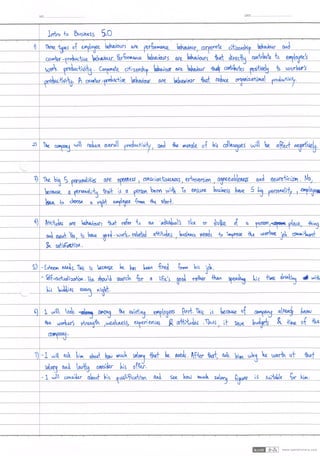 Intro to Business 5.0
1) Three types of employee behaviours are performance behaviour, corporate citizenship behaviour and
counter-productive behaviour. Performance behaviours are behaviours that directly contribute to employee's
work productivity. Corporate citizenship behaviour are behaviour that contributes positively to worker's
productivity. A counter-productive behaviour are behaviour that reduce organizational productivity.
2) The company will reduce overall productivity, and the morale of his colleagues will be affect negatively.
3) The big 5 personalities are openness, conscientiousness, extraversion, agreeableness and neuroticism. No,
because a personality trait is a person been with. To ensure business have 5 big personality, employers
have to choose a right employee from the start.
4) Attitudes are behaviours that refer to an individual's like or dislike of a person, place, thing
and event. No, to have good-work-related attitudes, business needs to improve the worker job commitment
& satisfaction.
5) - Esteem needs. This is because he has been fired from his job.
- Self-actualization. He should search for a life's goal rather than spending his time drinking with
his buddies every night.
6) I will look among the existing employees first. This is because of company already know
the workers strength, weakness, experiences & attitudes. Thus, it save budgets & time of the
company.
7) - I will ask him about how much salary that he needs. After that, ask him why he worth at that
salary and lastly consider his offer.
- I will consider about his qualification and see how much salary figure is suitable for him.